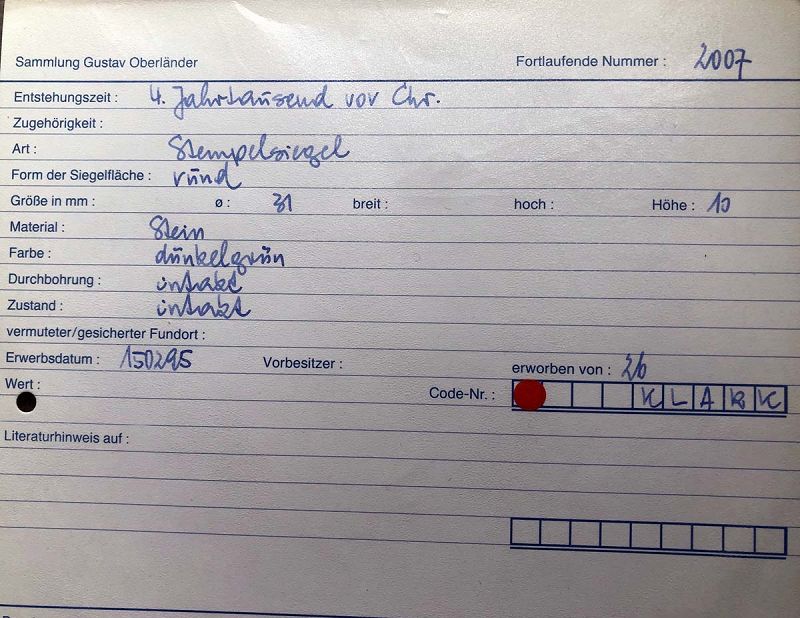 Sammlung Gustav Oberländer Fortlaufende Nummer : 2007
Entstehungszeit : 4. Jahrtausend vor Chr.
Zugehörigkeit :
Art : Stempelsiegel
Form der Siegelfläche : rund
Größe in mm : ø : 31 breit : hoch : Höhe : 10
Material : Stein
Farbe : dunkelgrün
Durchbohrung : intakt
Zustand : intakt
vermuteter/gesicherter Fundort :
Erwerbsdatum : 150295 Vorbesitzer : erworben von : 26
Wert : Code-Nr. : K L A R K
Literaturhinweis auf :